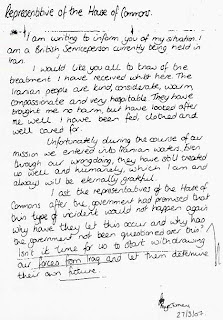 Representative of the House of Commons.
I am writing to inform you of my situation. I
am a British Serviceperson currently being held in
Iran.
I would like you all to know of the
treatment I have received whilst here. The
Iranian people are kind, considerate, warm,
compassionate and very hospitable. They have
brought me no harm, but have looked after
me well. I have been fed, clothed and
well cared for.
Unfortunately during the course of our
mission we entered into Iranian waters. Even
through our wrongdoing, they have still treated
us well and humanely, which I am and
always will be eternally grateful.
I ask the representatives of the House of
Commons after the government had promised that
this type of incident would not happen again
why have they let this occur and why has
the government not been questioned over this?
Isn't it time for us to start withdrawing
our forces from Iraq and let them determine
their own future.
27/3/07